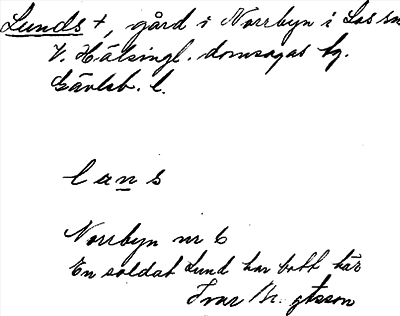 Lunds +, gård i Norrbyn i Los sn
V. Hälsingl. domsagas tg.
Gävleb. l.
lans
Norrbyn nr 6
En soldat Lund har bott här
Ivar